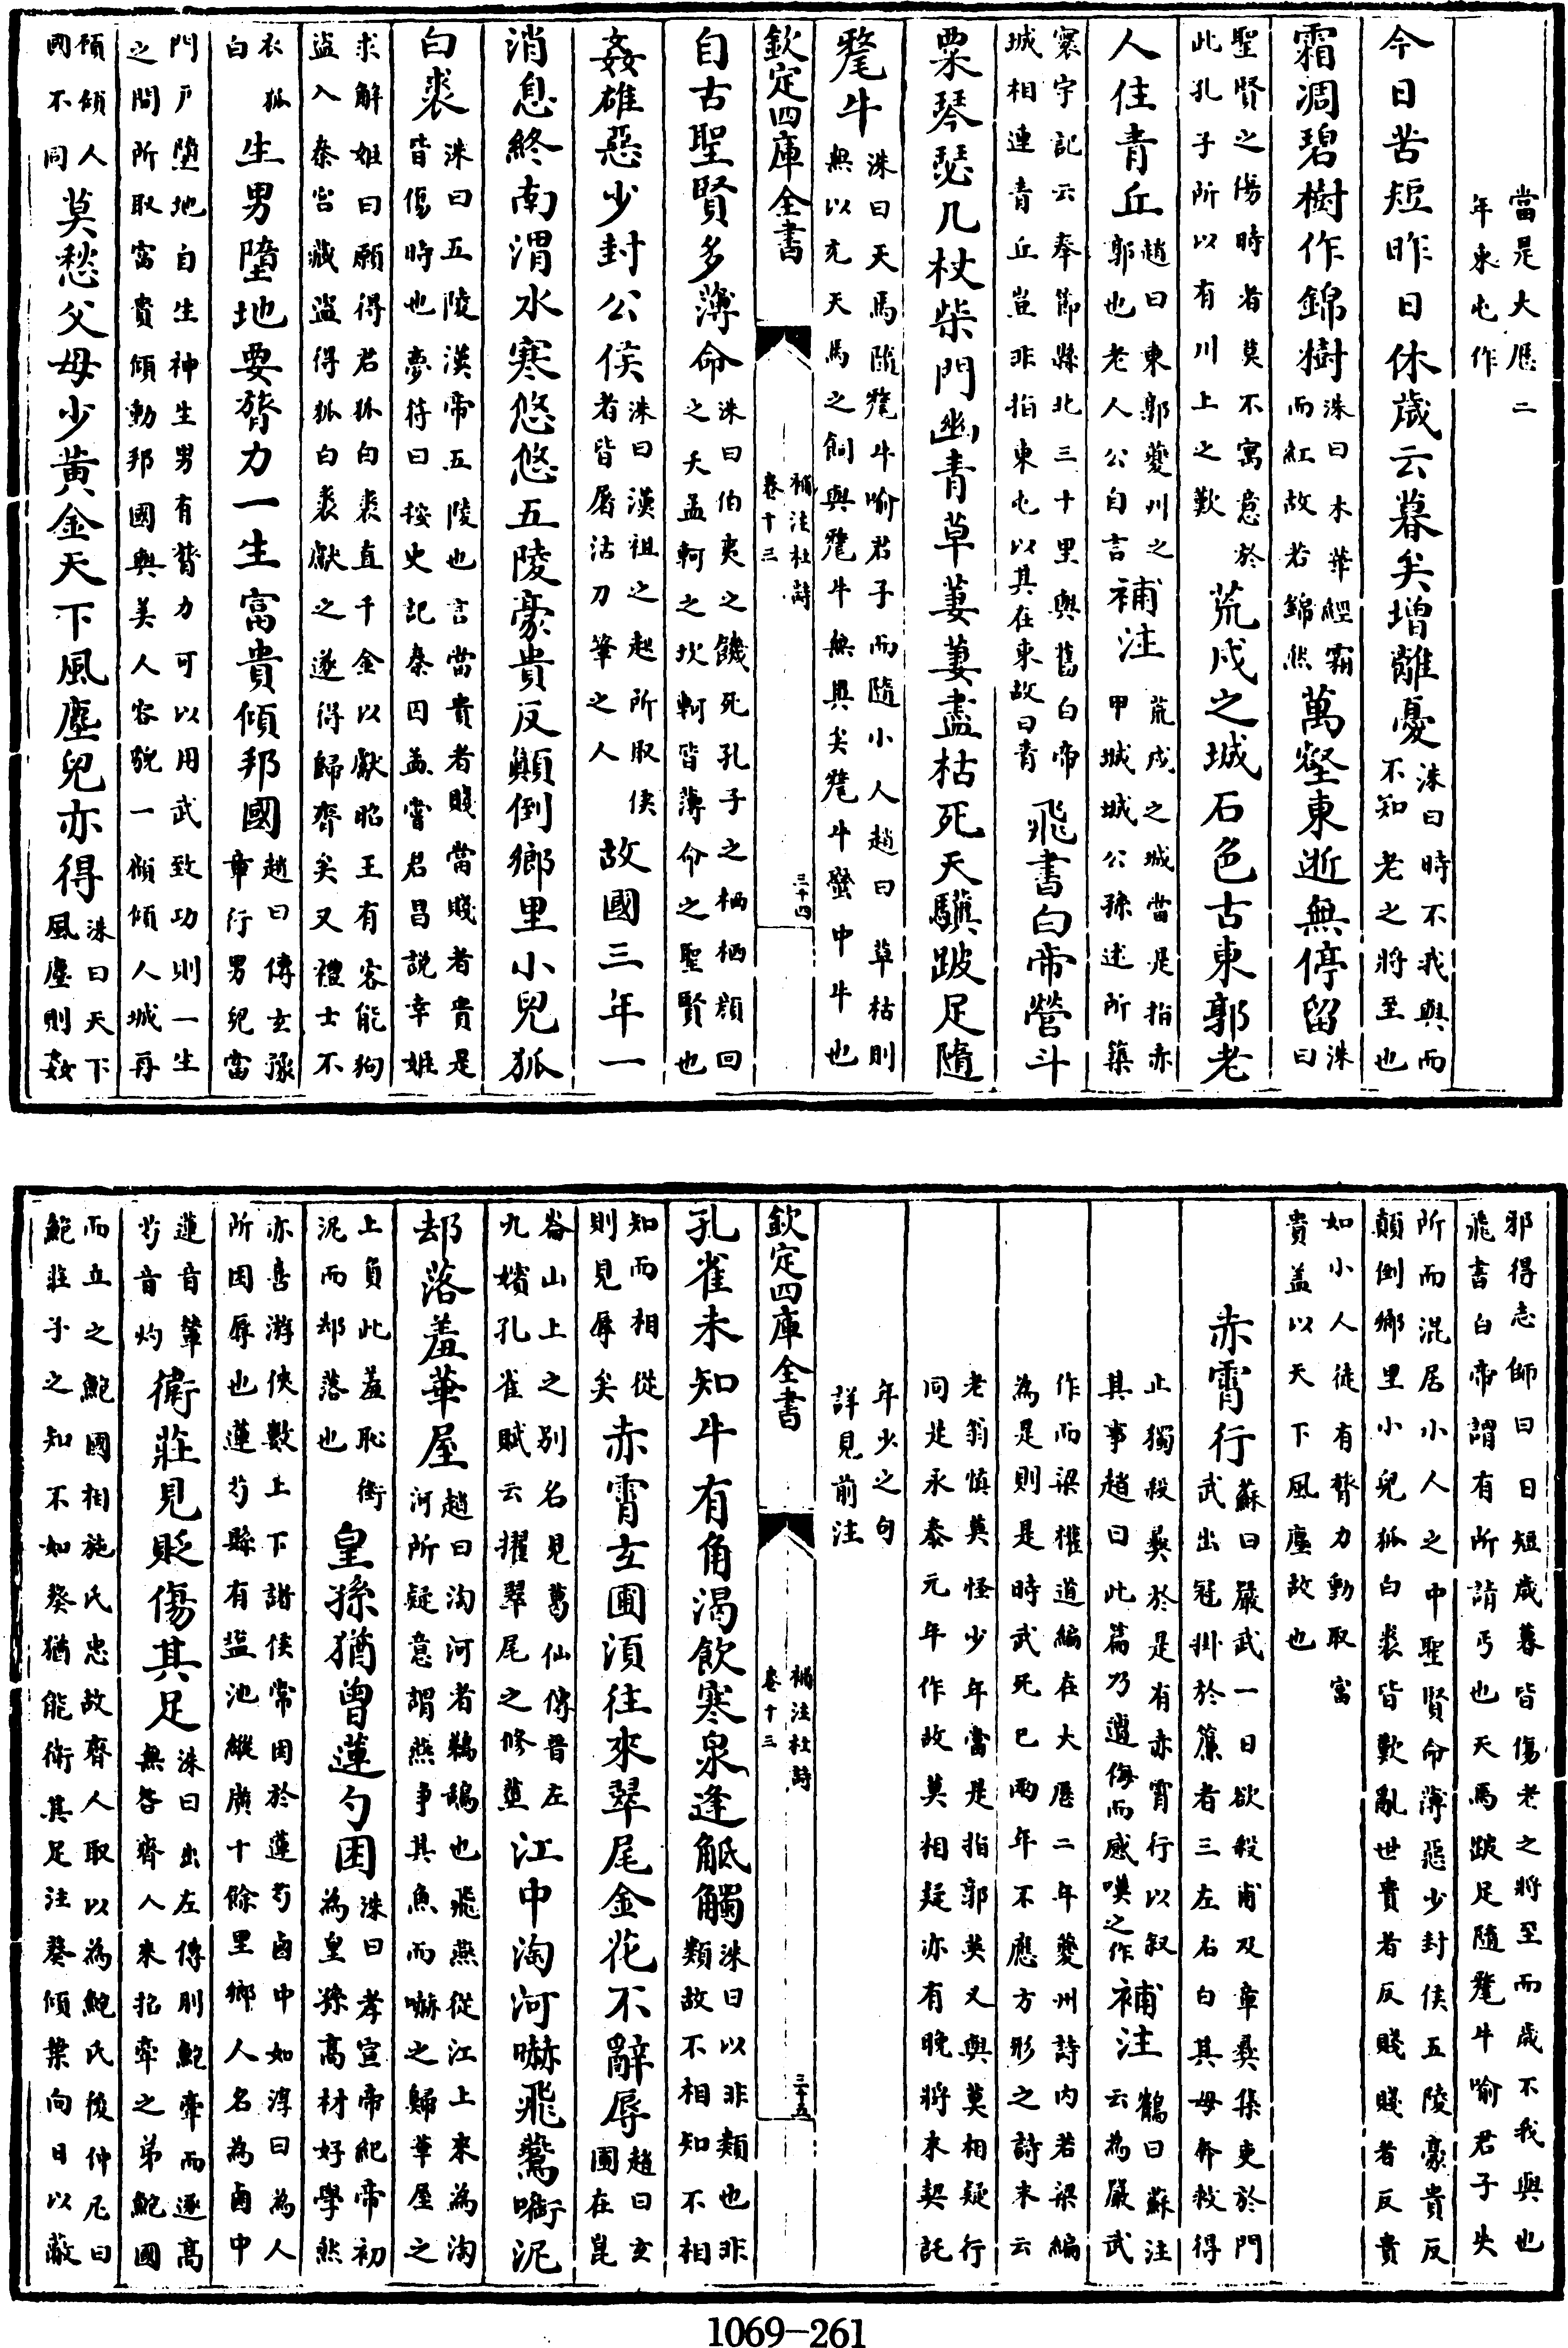 當是大厯二
年東屯作
今日苦短昨日休歲云暮矣增離憂洙曰時不我與而不知老之將至也
霜凋碧樹作錦樹洙曰木葉經霜而紅故若錦然萬壑東逝無停留洙曰
聖賢之傷時者莫不寓意於此孔子所以有川上之歎荒戍之城石色古東郭老
人住青丘趙曰東郭夔州之郭也老人公自言補注荒戍之城當是指赤甲城城公孫述所築
寰宇記云奉節縣北三十里與舊白帝城相連青丘豈非指東屯以其在東故曰青飛書白帝營斗
粟琴瑟几杖柴門幽青草萋萋盡枯死天驥跛足隨
氂牛洙曰天馬隨氂牛喻君子而隨小人趙曰草枯則無以充天馬之飼與氂牛無異矣氂牛蠻中牛也
欽定四庫全書
補注杜詩
卷十三
三十四
自古聖賢多薄命洙曰伯夷之饑死孔子之栖栖顔回之夭孟軻之坎軻皆薄命之聖賢也
姦雄惡少封公侯洙曰漢祖之起所取侯者皆屠沽刀筆之人故國三年一
消息終南渭水寒悠悠五陵豪貴反顛倒鄉里小兒狐
白裘洙曰五陵漢帝五陵也言當貴者賤當賤者貴是皆傷時也夢符曰按史記秦囚孟嘗君昌説幸姬
求解姬曰願得君狐白裘直千金以獻昭王有客能狗盜入秦宫藏盜得狐白裘獻之遂得歸齊矣又禮士不
衣狐白生男墮地要膂力一生富貴傾邦國趙曰傅玄豫章行男兒當
門戸墮地自生神生男有膂力可以用武致功則一生之間所取富貴傾動邦國與美人容貌一傾傾人城再
傾傾人國不同莫愁父母少黄金天下風塵兒亦得洙曰天下風塵則姦
邪得志師曰日短歲暮皆傷老之將至而歲不我與也飛書白帝謂有所請丐也天馬跛足隨氂牛喻君子失
所而混居小人之中聖賢命薄惡少封侯五陵豪貴反顛倒鄉里小兒狐白裘皆歎亂世貴者反賤賤者反貴
如小人徒有膂力動取富貴盖以天下風塵故也
赤霄行蘇曰嚴武一日欲殺甫及章彛集吏於門武出冠掛於簾者三左右白其母奔救得
止獨殺彛於是有赤霄行以叙其事趙曰此篇乃遭侮而感嘆之作補注鶴曰蘇注云為嚴武
作而梁權道編在大厯二年夔州詩内若梁編為是則是時武死已兩年不應方形之詩末云
老翁慎莫怪少年當是指郭英乂與莫相疑行同是永泰元年作故莫相疑亦有晚將末契託
年少之句
詳見前注
欽定四庫全書
補注杜詩
卷十三
三十五
孔雀未知牛有角渴飲寒泉逢觝觸洙曰以非類也非類故不相知不相
知而相從則見辱矣赤霄玄圃須往來翠尾金花不辭辱趙曰玄圃在崑
崙山上之别名見葛仙傳晉左九嬪孔雀賦云擢翠尾之修莖江中淘河嚇飛鷰㘅泥
却落羞華屋趙曰淘河者鵜鶘也飛燕從江上來為淘河所疑意謂燕爭其魚而嚇之歸華屋之
上負此羞恥㘅泥而却落也皇孫猶曾蓮勺困洙曰孝宣帝紀帝初為皇孫高材好學然
亦喜游俠數上下諸侯常困於蓮芍鹵中如淳曰為人所困辱也蓮芍縣有鹽池縱廣十餘里鄉人名為鹵中
蓮音輦芍音灼衛莊見貶傷其足洙曰出左傳刖鮑牽而逐高無咎齊人來招牽之弟鮑國
而立之鮑國相施氏忠故齊人取以為鮑氏後仲尼曰鮑莊子之知不如葵猶能衛其足注葵傾葉向日以蔽
1069-261